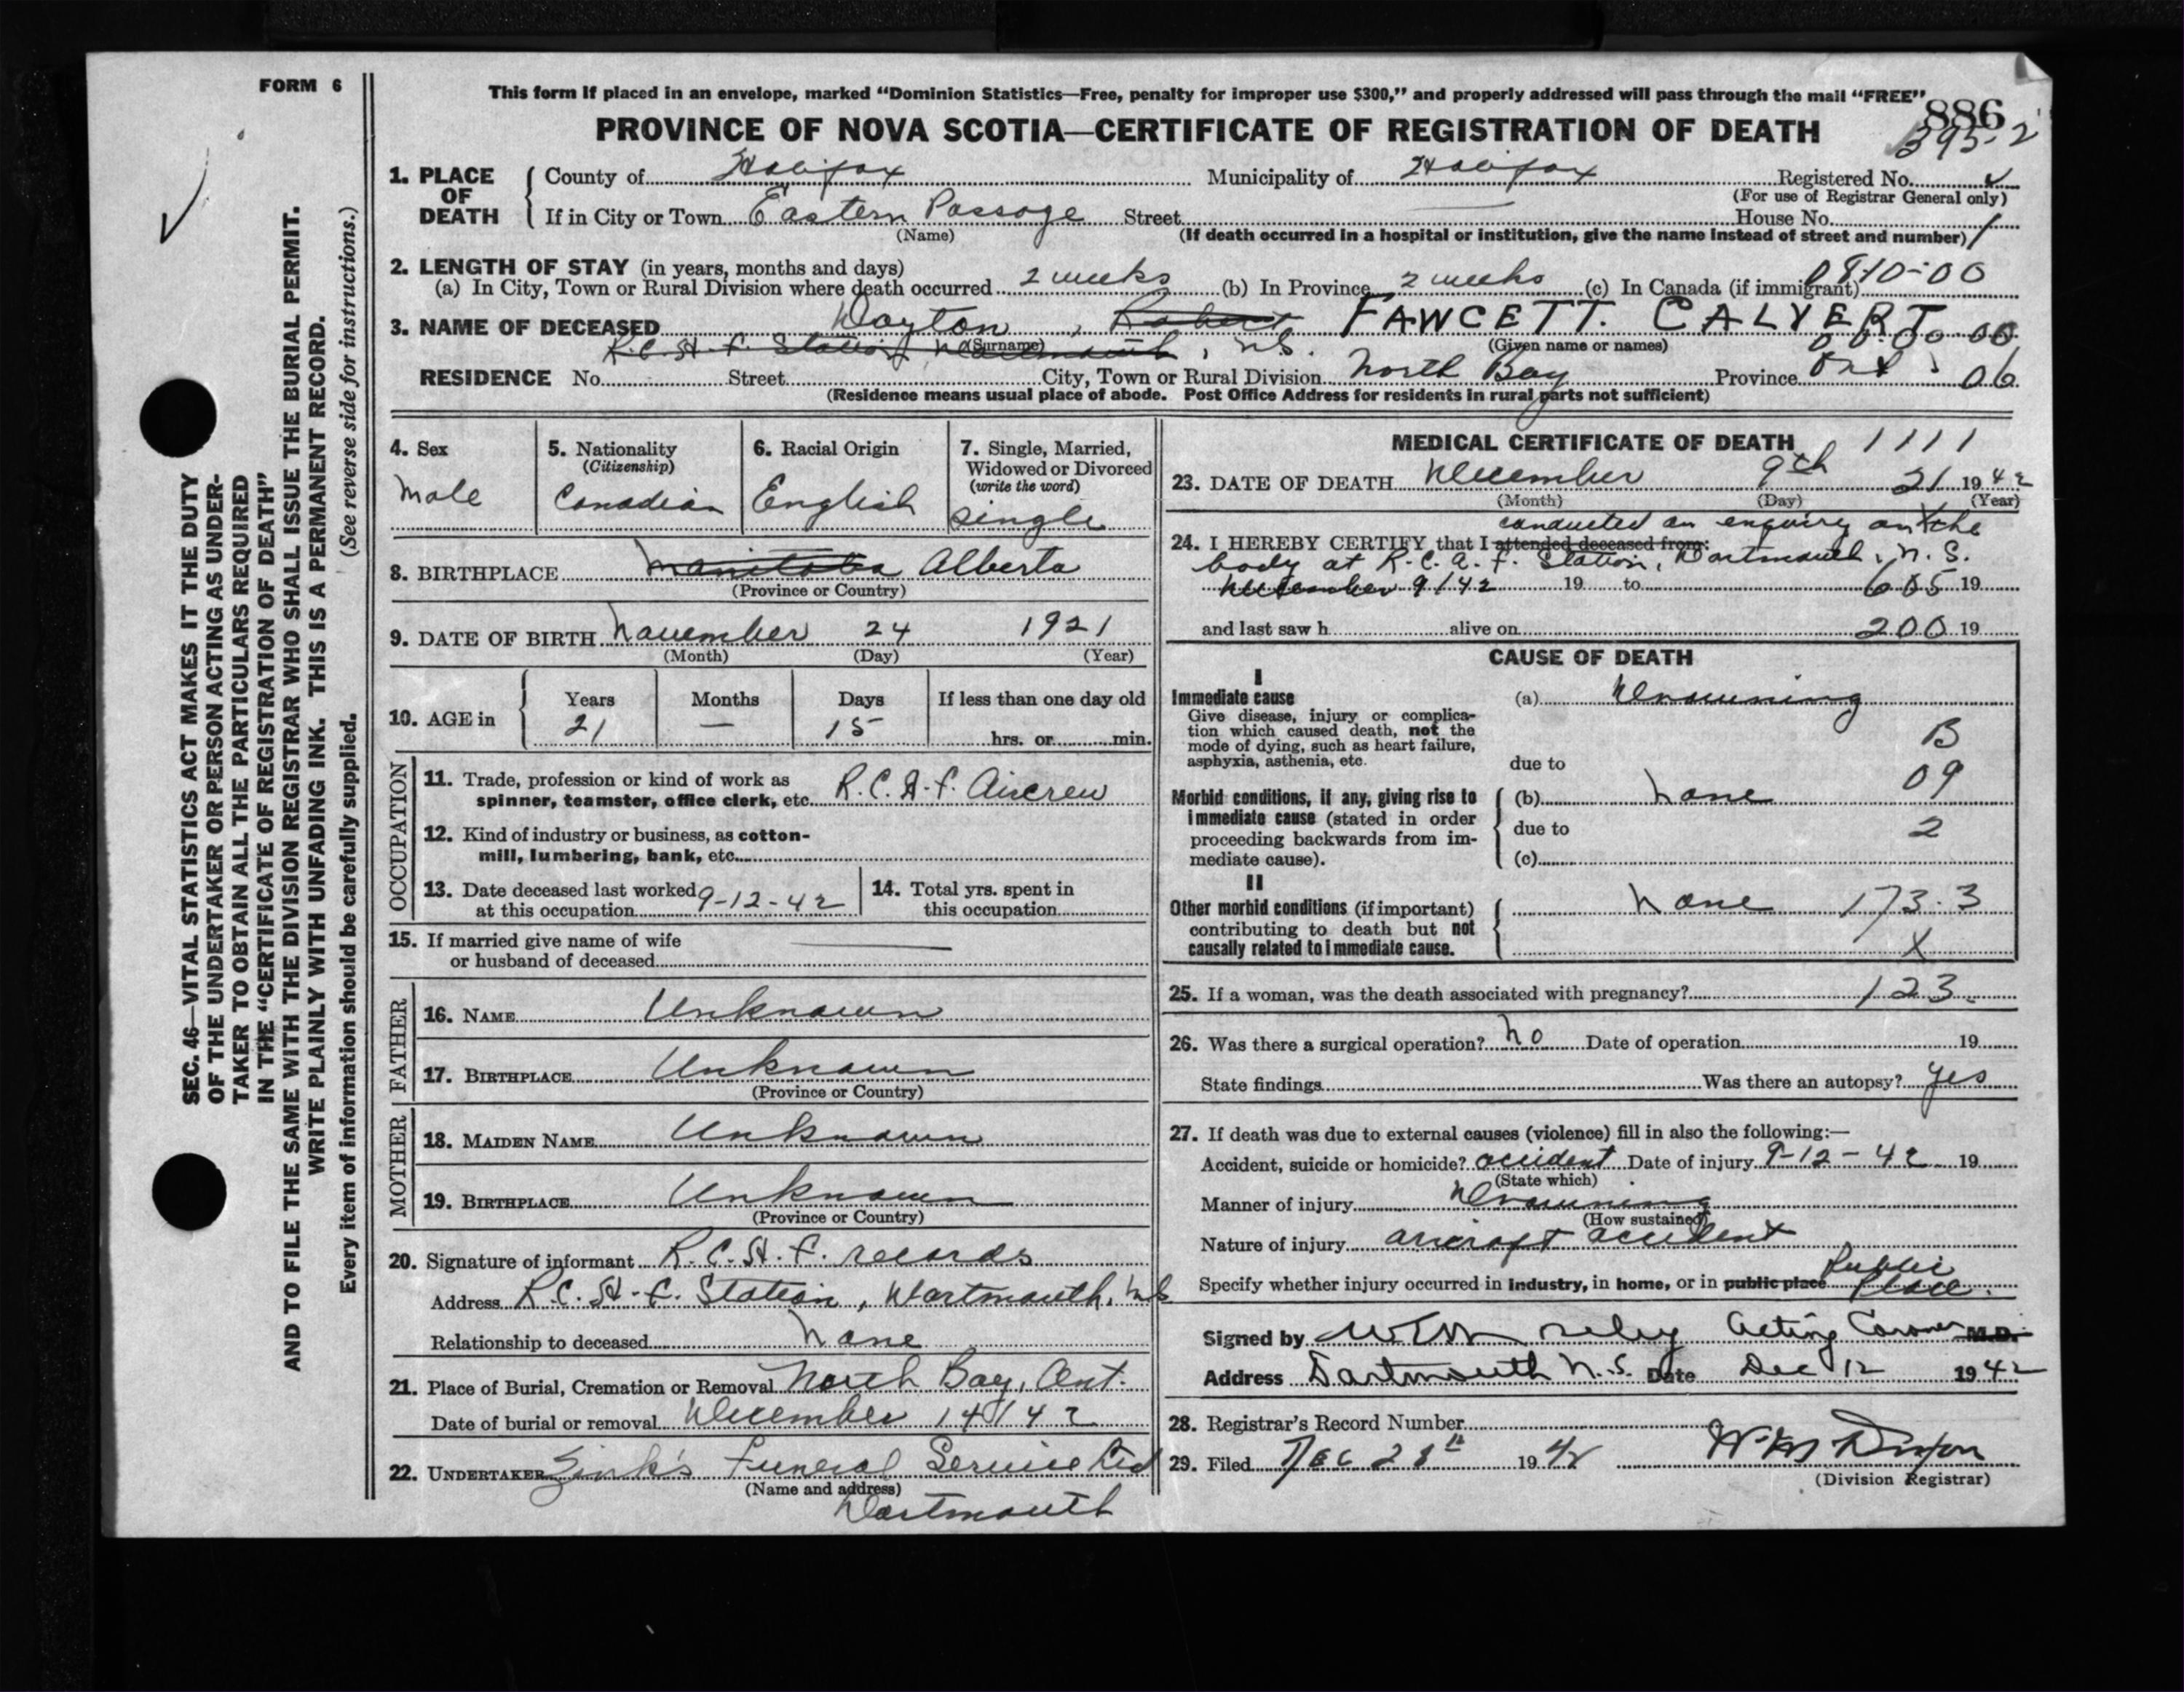 FORM 6
This form if placed in an envelope, marked "Dominion Statistics—Free, penalty for improper use $300," and properly addressed will pass through the mail "FREE"
886
PROVINCE OF NOVA SCOTIA—CERTIFICATE OF REGISTRATION OF DEATH
395-2
1. PLACE OF DEATH
County of Halifax Municipality of Halifax Registered No.
(For use of Registrar General only)
If in City or Town Eastern Passage Street — House No.
(Name) (If death occurred in a hospital or institution, give the name instead of street and number) 1
2. LENGTH OF STAY (in years, months and days)
(a) In City, Town or Rural Division where death occurred 2 weeks (b) In Province 2 weeks (c) In Canada (if immigrant) 0810-00
3. NAME OF DECEASED Dayton, Robert FAWCETT. CALVERT
(Surname) (Given name or names)
R.C.A.F. Station Dartmouth, N.S. 00.00 00
RESIDENCE No. Street City, Town or Rural Division North Bay Province Ont 06
(Residence means usual place of abode. Post Office Address for residents in rural parts not sufficient)
4. Sex
Male
5. Nationality
(Citizenship)
Canadian
6. Racial Origin
English
7. Single, Married, Widowed or Divorced
(write the word)
Single
8. BIRTHPLACE Manitoba Alberta
(Province or Country)
9. DATE OF BIRTH November 24 1921
(Month) (Day) (Year)
10. AGE in
Years Months Days If less than one day old
21 — 15 hrs. or min.
OCCUPATION
11. Trade, profession or kind of work as
spinner, teamster, office clerk, etc. R.C.A.F. Aircrew
12. Kind of industry or business, as cotton-
mill, lumbering, bank, etc.
13. Date deceased last worked
at this occupation 9-12-42
14. Total yrs. spent in
this occupation
15. If married give name of wife —
or husband of deceased
FATHER
16. NAME Unknown
17. BIRTHPLACE Unknown
(Province or Country)
MOTHER
18. MAIDEN NAME Unknown
19. BIRTHPLACE Unknown
(Province or Country)
20. Signature of informant R.C.A.F. records
Address R.C.A.F. Station, Dartmouth, N.S
Relationship to deceased None
21. Place of Burial, Cremation or Removal North Bay, Ont.
Date of burial or removal December 14/42
22. UNDERTAKER Zink's Funeral Service Ltd
(Name and address)
Dartmouth
MEDICAL CERTIFICATE OF DEATH 1111
23. DATE OF DEATH December 9th 21 1942
(Month) (Day) (Year)
conducted an enquiry on the
24. I HEREBY CERTIFY that I attended deceased from:
body at R.C.A.F. Station, Dartmouth, N.S.
December 9/42 19 to 605 19
and last saw h alive on 200 19
CAUSE OF DEATH
I
Immediate cause (a) Drowning
Give disease, injury or complica-
tion which caused death, not the
mode of dying, such as heart failure,
asphyxia, asthenia, etc.
B
due to
09
Morbid conditions, if any, giving rise to
immediate cause (stated in order
proceeding backwards from im-
mediate cause).
(b) None
due to 2
(c)
II
Other morbid conditions (if important)
contributing to death but not
causally related to immediate cause.
None 173.3
X
25. If a woman, was the death associated with pregnancy? 123.
26. Was there a surgical operation? No Date of operation 19
State findings Was there an autopsy? Yes
27. If death was due to external causes (violence) fill in also the following:—
Accident, suicide or homicide? accident Date of injury 9-12-42 19
(State which)
Manner of injury Drowning
(How sustained)
Nature of injury aircraft accident
Specify whether injury occurred in industry, in home, or in public place Public Place.
Signed by Acting Coroner M.D.
Address Dartmouth N.S. Date Dec 12 1942
28. Registrar's Record Number
29. Filed Dec 28th 1942
(Division Registrar)
SEC. 46—VITAL STATISTICS ACT MAKES IT THE DUTY
OF THE UNDERTAKER OR PERSON ACTING AS UNDER-
TAKER TO OBTAIN ALL THE PARTICULARS REQUIRED
IN THE "CERTIFICATE OF REGISTRATION OF DEATH"
AND TO FILE THE SAME WITH THE DIVISION REGISTRAR WHO SHALL ISSUE THE BURIAL PERMIT.
WRITE PLAINLY WITH UNFADING INK. THIS IS A PERMANENT RECORD.
Every item of information should be carefully supplied. (See reverse side for instructions.)